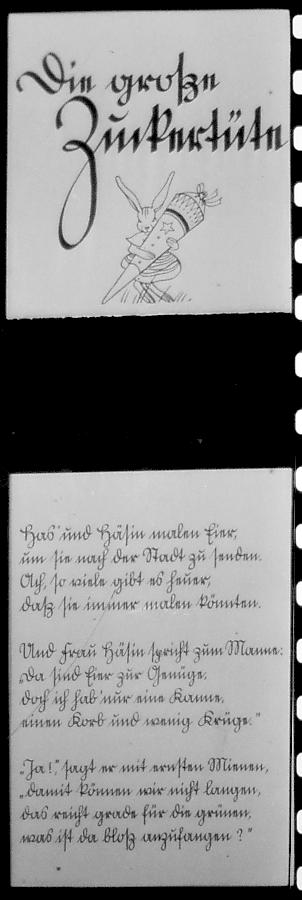 Die große
Zuckertüte
Has' und Häsin malen Eier,
um sie nach der Stadt zu senden.
Ach, so viele gibt es heuer,
daß sie immer malen könnten.
Und Frau Häsin spricht zum Manne:
„Da sind Eier zur Genüge,
doch ich hab' nur eine Kanne,
einen Korb und wenig Krüge."
„Ja!", sagt er mit ernsten Mienen,
„damit können wir nicht langen,
das reicht grade für die grünen,
was ist da bloß anzufangen?"